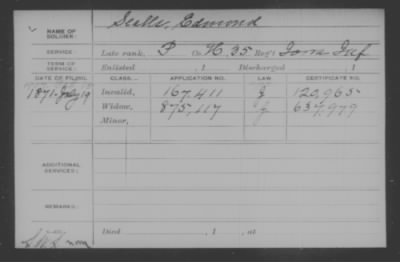 NAME OF SOLDIER: Scalls, Edmond
SERVICE: Late rank, P Co. H, 35 Reg't Iowa Inf
TERM OF SERVICE: Enlisted , 1 Discharged , 1
DATE OF FILING. CLASS. APPLICATION NO. LAW CERTIFICATE NO.
1871 July 19 Invalid, 167.411 120,965
Widow, 875,117 637,979
Minor,
ADDITIONAL SERVICES:
REMARKS:
Died , 1 , at